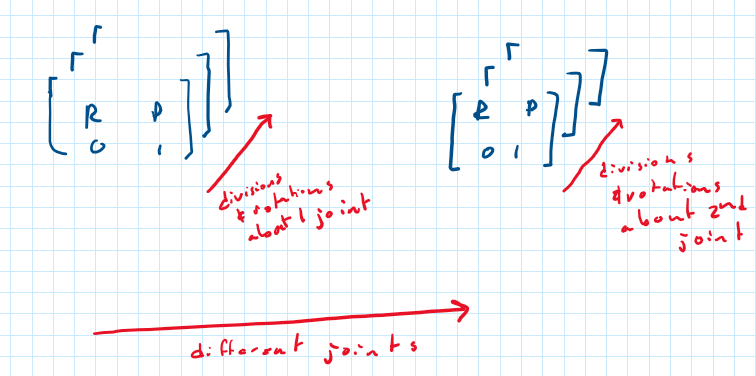 R P
0 1
R P
0 1
divisions
& rotations
about 1 joint
divisions
& rotations
about 2nd
joint
different joints